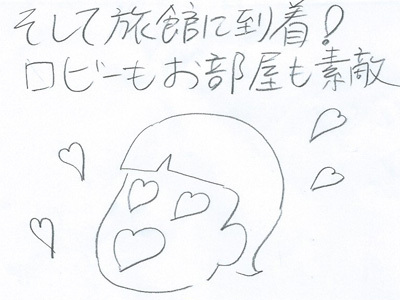 そして旅館に到着!
ロビーもお部屋も素敵